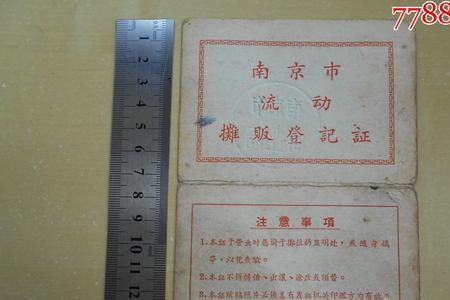 7788
南京市
流动
攤販登記証
注意事項
1.本証于營业时悬掛于摊位的显明处，或随身攜
帶，以免查驗。
2.本証不得轉借、出讓、涂改或頂替。
1 2 3 4 5 6 7 8 9 10 11 12